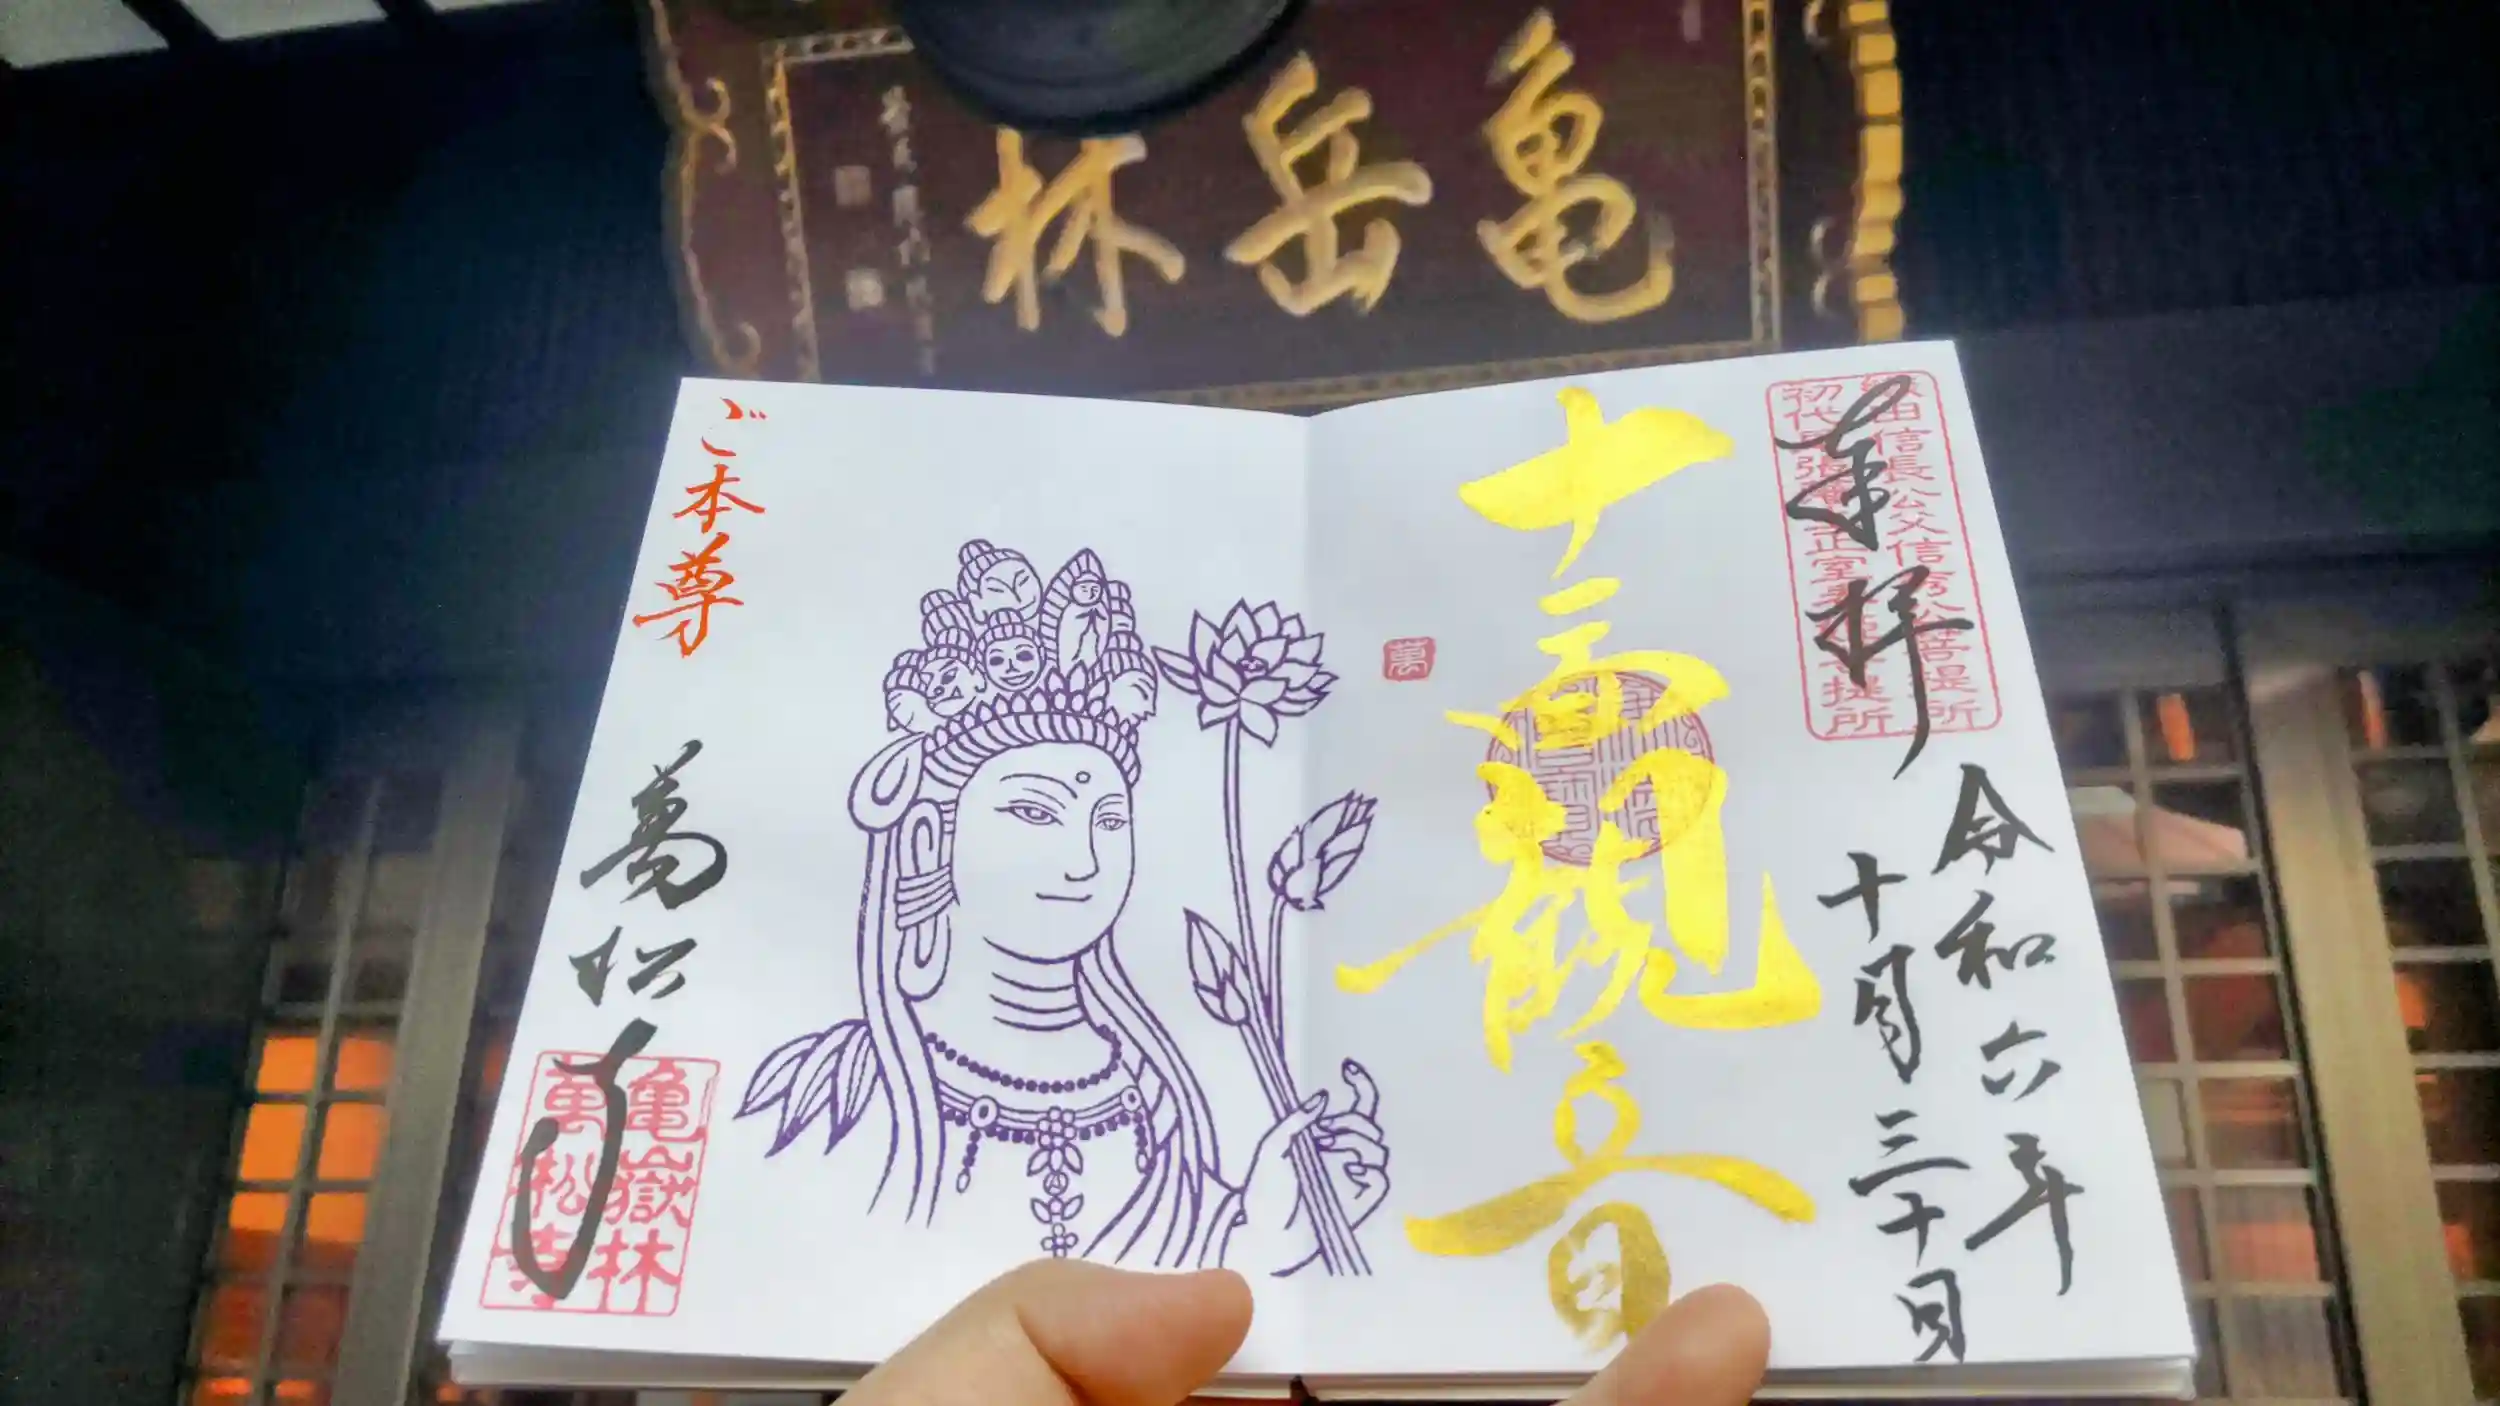 亀岳林
奉拝
織田信長公父信秀公菩提所
初代尾張藩主正室春姫菩提所
令和六年
十月三十日
十一面観音
萬
ご本尊
萬松寺
亀嶽林
萬松寺